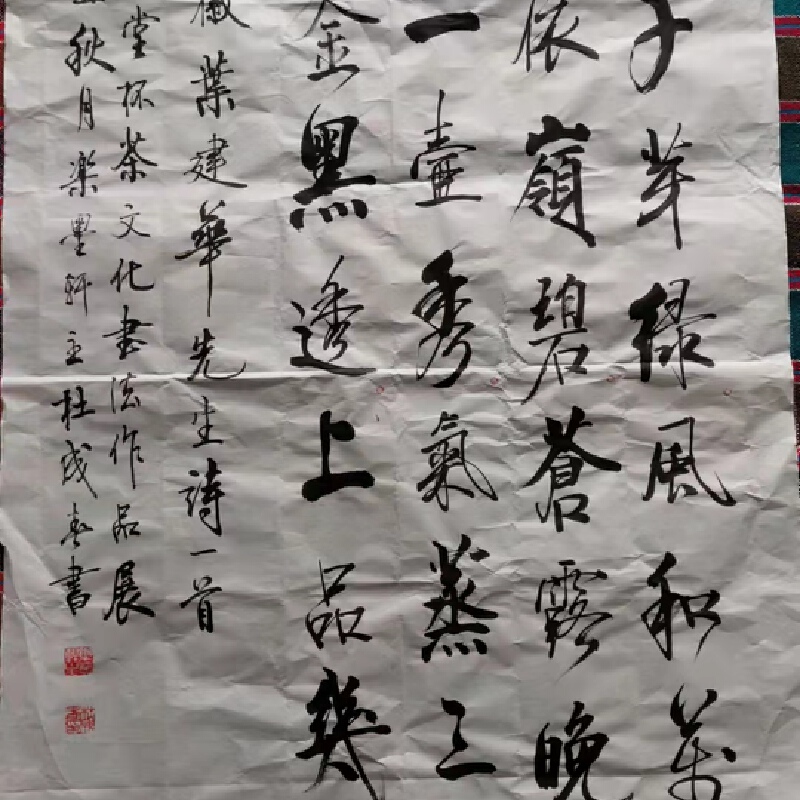 子芽绿風和萬
依嶺碧蒼露晚
一壺秀氣蒸三
金黑透上品幾
葉建華先生詩一首
堂杯茶文化書法作品展
秋月樂墨軒主杜成春書